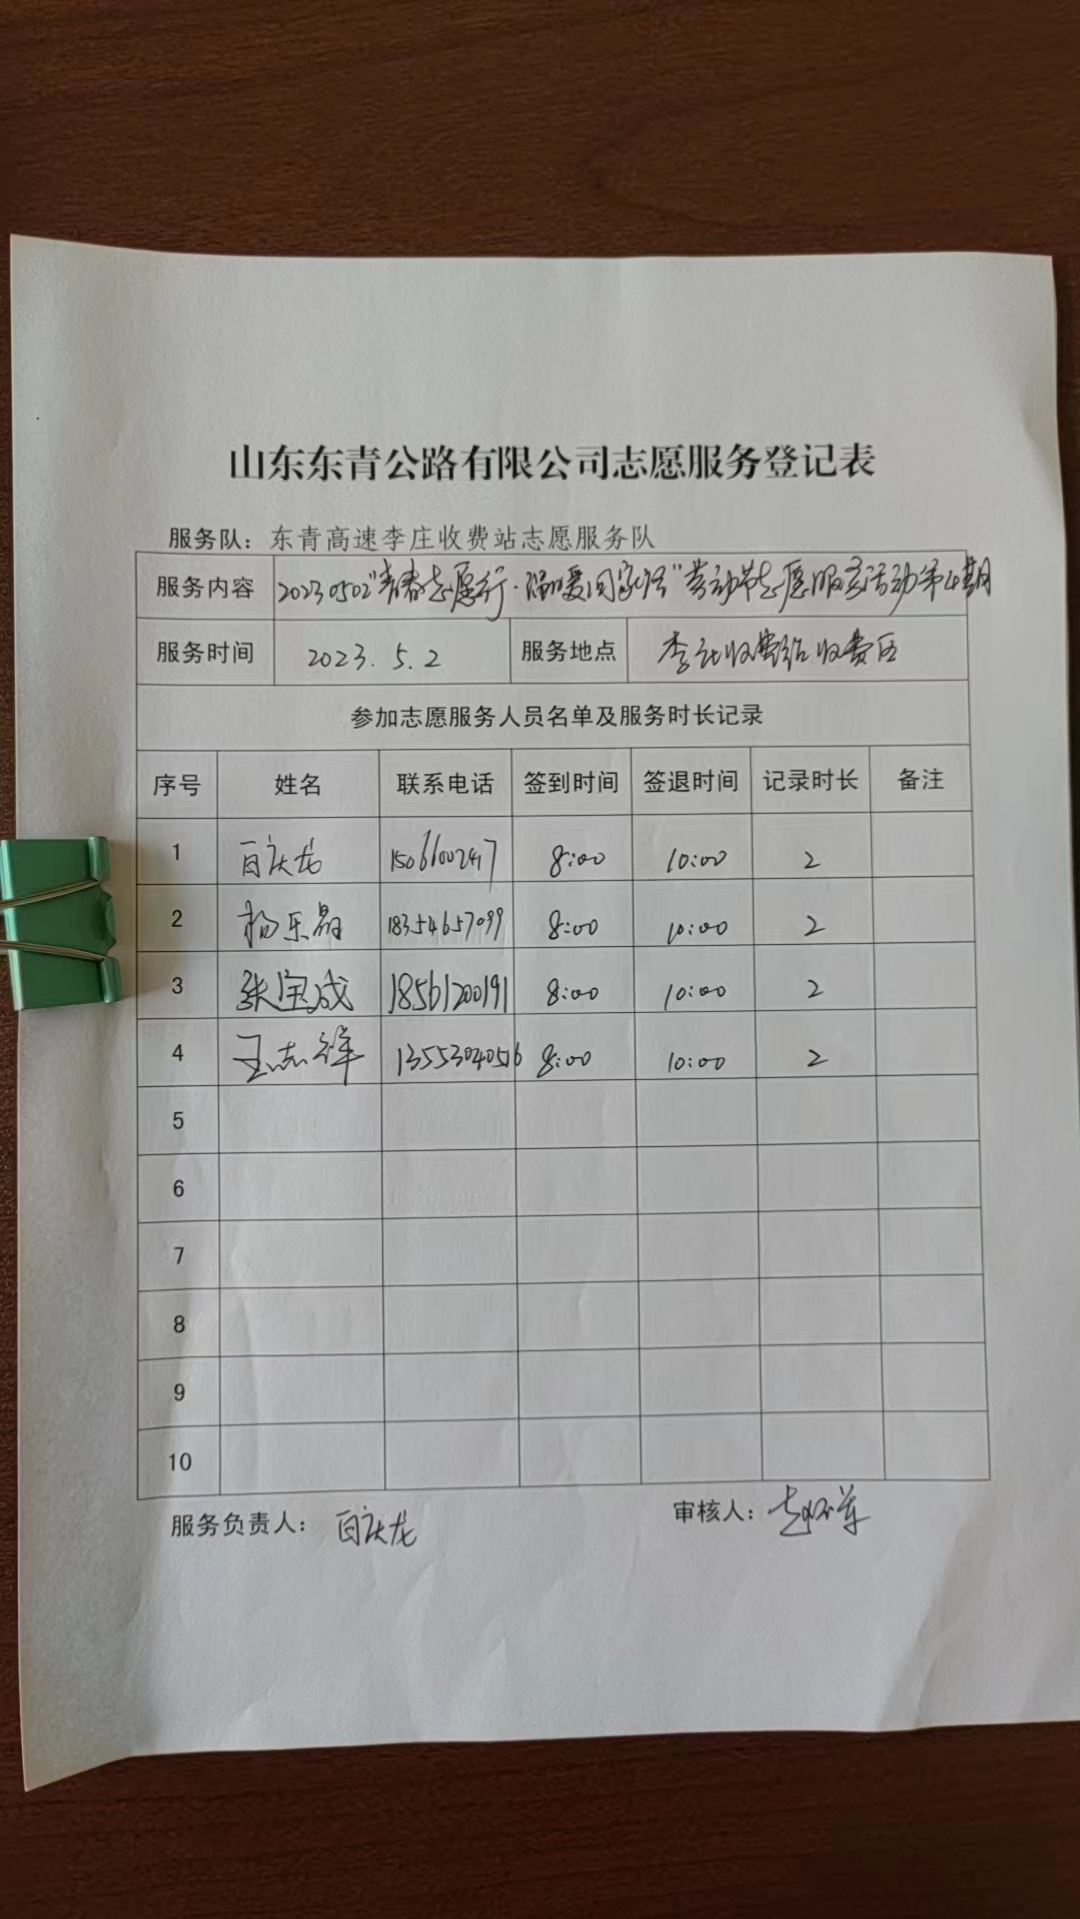 山东东青公路有限公司志愿服务登记表
服务队：东青高速李庄收费站志愿服务队
服务内容 20230502“青春志愿行·温暖回家路”劳动节志愿服务活动第4期
服务时间 2023.5.2 服务地点 李庄收费站收费区
参加志愿服务人员名单及服务时长记录
序号 姓名 联系电话 签到时间 签退时间 记录时长 备注
1 8:00 10:00 2
2 18354657099 8:00 10:00 2
3 张宝成 18561200191 8:00 10:00 2
4 王志祥 8:00 10:00 2
5
6
7
8
9
10
服务负责人： 审核人：